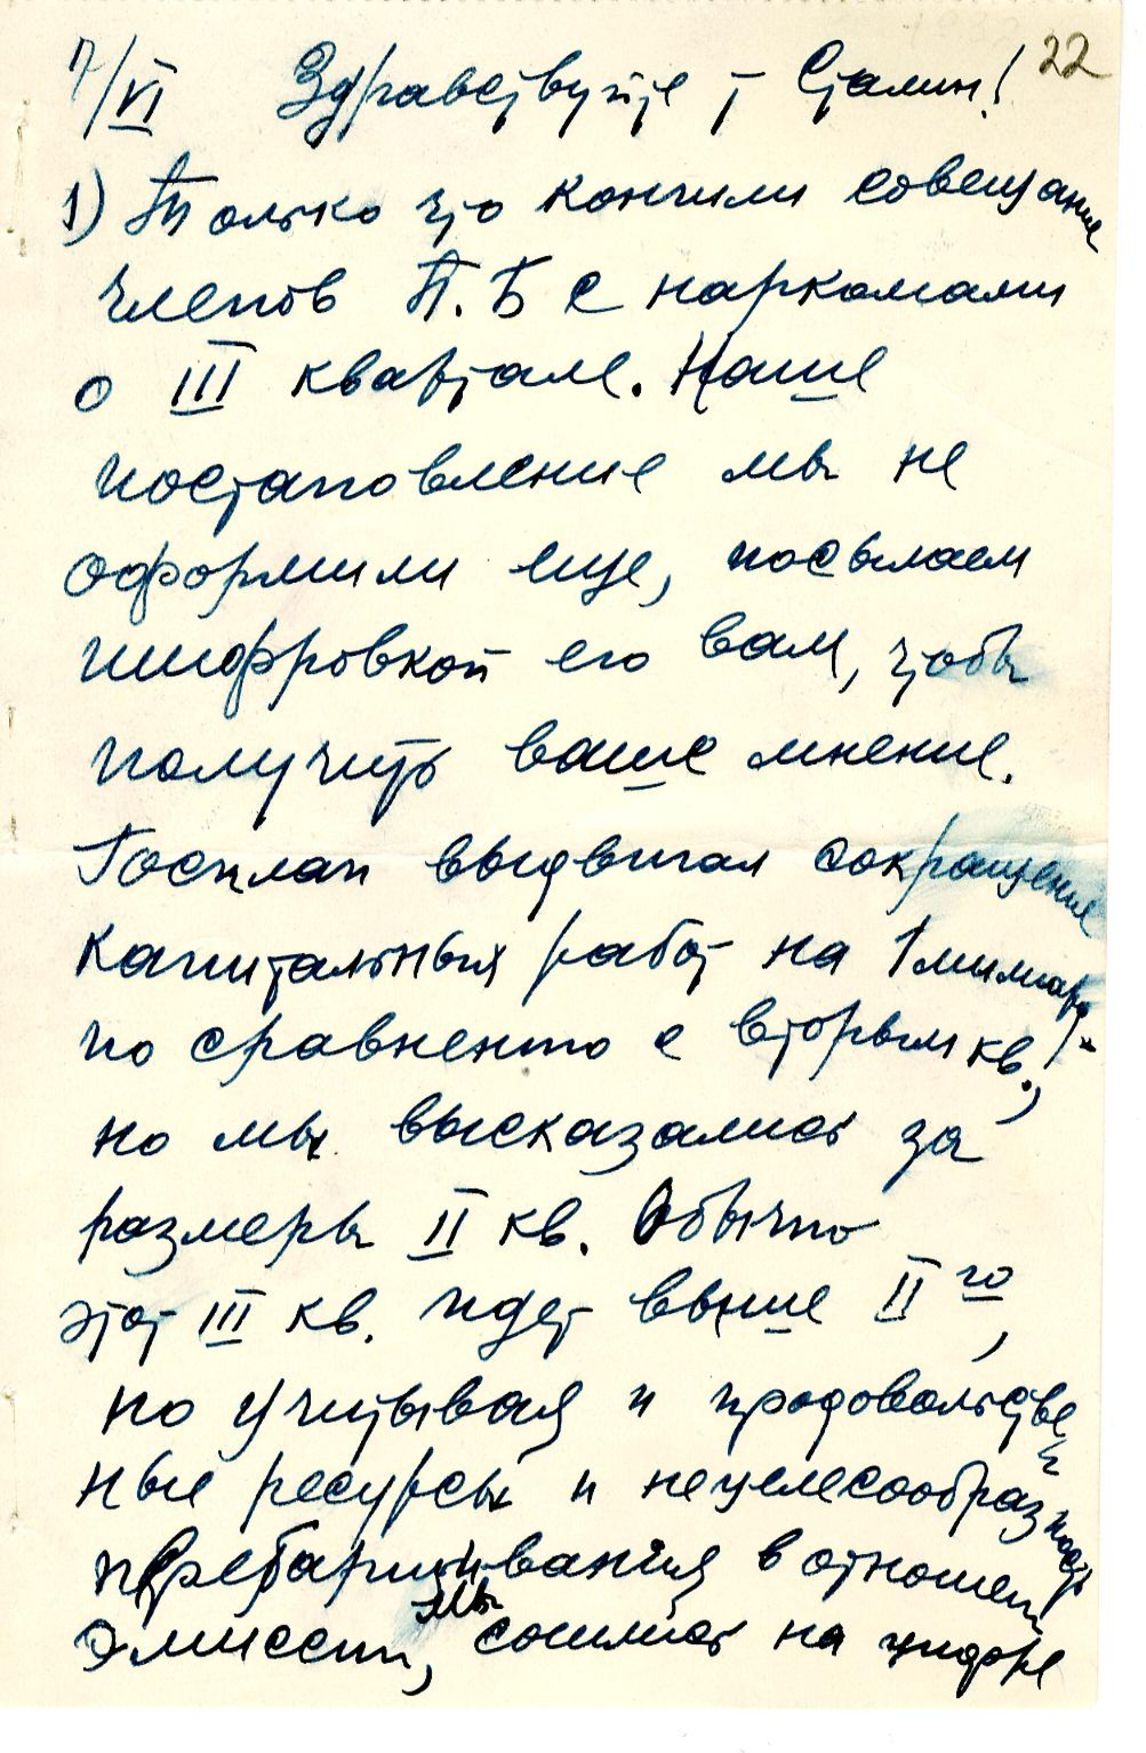 22
7/VI Здравствуйте т Сталин!
1) Только что кончили совещание
членов П.Б с наркомами
о III квартале. Наше
постановление мы не
оформили еще, посылаем
шифровкой его вам, чтобы
получить ваше мнение.
Госплан выдвигал сокращение
капитальных работ на 1 милиард
по сравненью с вторым кв.,
но мы высказались за
размеры II кв. Обычно
этот III кв. идет выше II го,
но учитывая и продовольствен
ные ресурсы и нецелесообразность
перебарщивания в отношен
эмиссии, мы сошлись на цифре